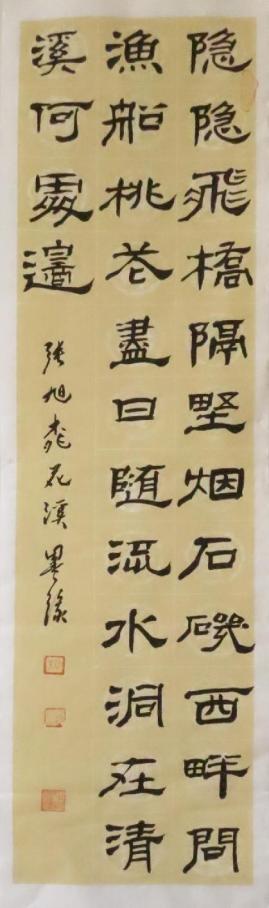 隐隐飛橋隔野烟石磯西畔問
漁船桃花盡日随流水洞在清
溪何處邊
張旭桃花溪